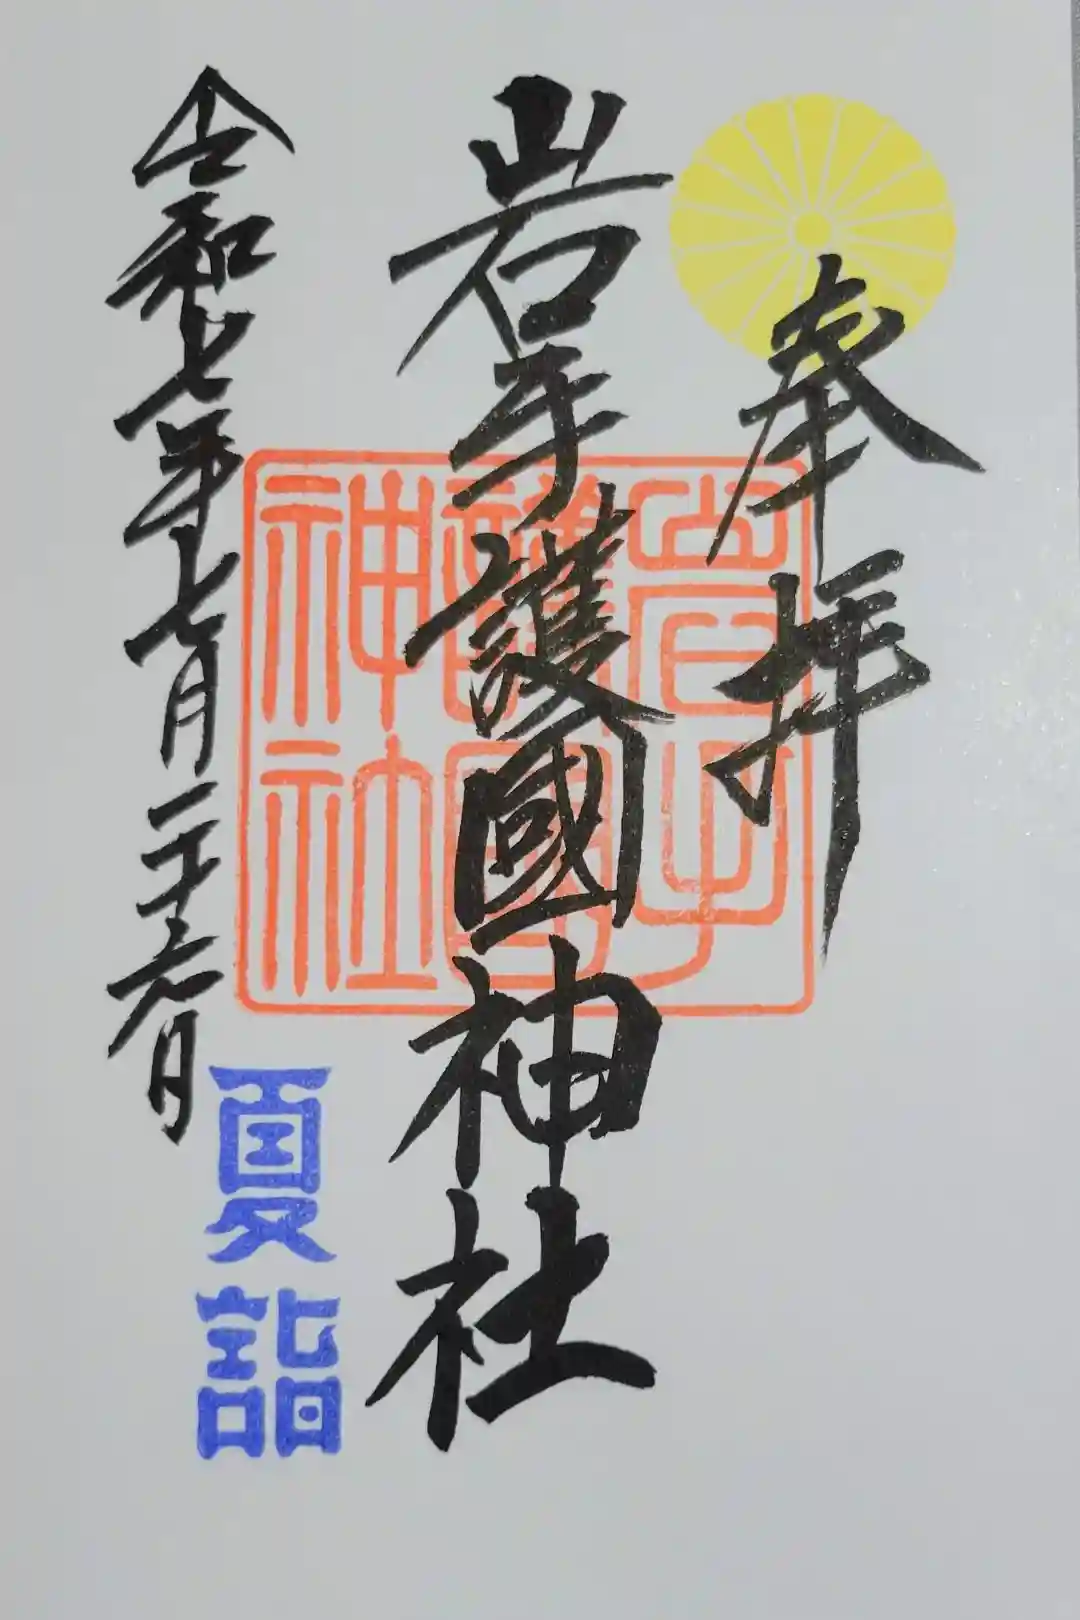 奉拝
岩手護國神社
岩手護國神社
令和七年七月二十六日
夏詣